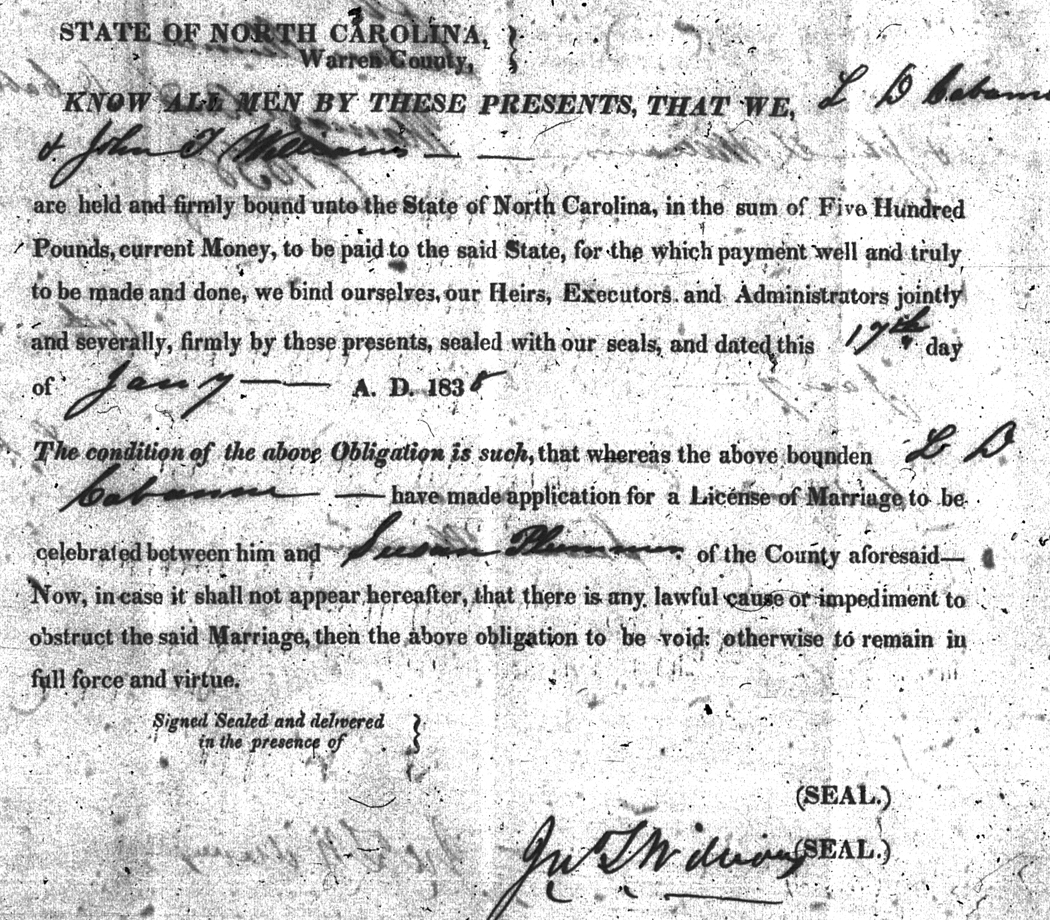 STATE OF NORTH CAROLINA,
Warren County,
KNOW ALL MEN BY THESE PRESENTS, THAT WE, L D
& John T Williams
are held and firmly bound unto the State of North Carolina, in the sum of Five Hundred
Pounds, current Money, to be paid to the said State, for the which payment well and truly
to be made and done, we bind ourselves, our Heirs, Executors and Administrators jointly
and severally, firmly by these presents, sealed with our seals, and dated this 17th day
of Jany A. D. 183
The condition of the above Obligation is such, that whereas the above bounden L D
have made application for a License of Marriage to be
celebrated between him and Susan Plummer of the County aforesaid—
Now, in case it shall not appear hereafter, that there is any lawful cause or impediment to
obstruct the said Marriage, then the above obligation to be void: otherwise to remain in
full force and virtue.
Signed Sealed and delivered
in the presence of
(SEAL.)
Jno T Williams (SEAL.)